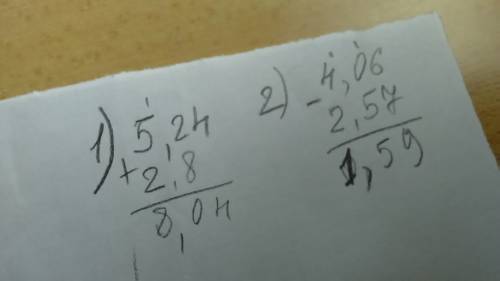 1) 5,24
+ 2,8
8,04
2) - 4,06
2,57
1,59